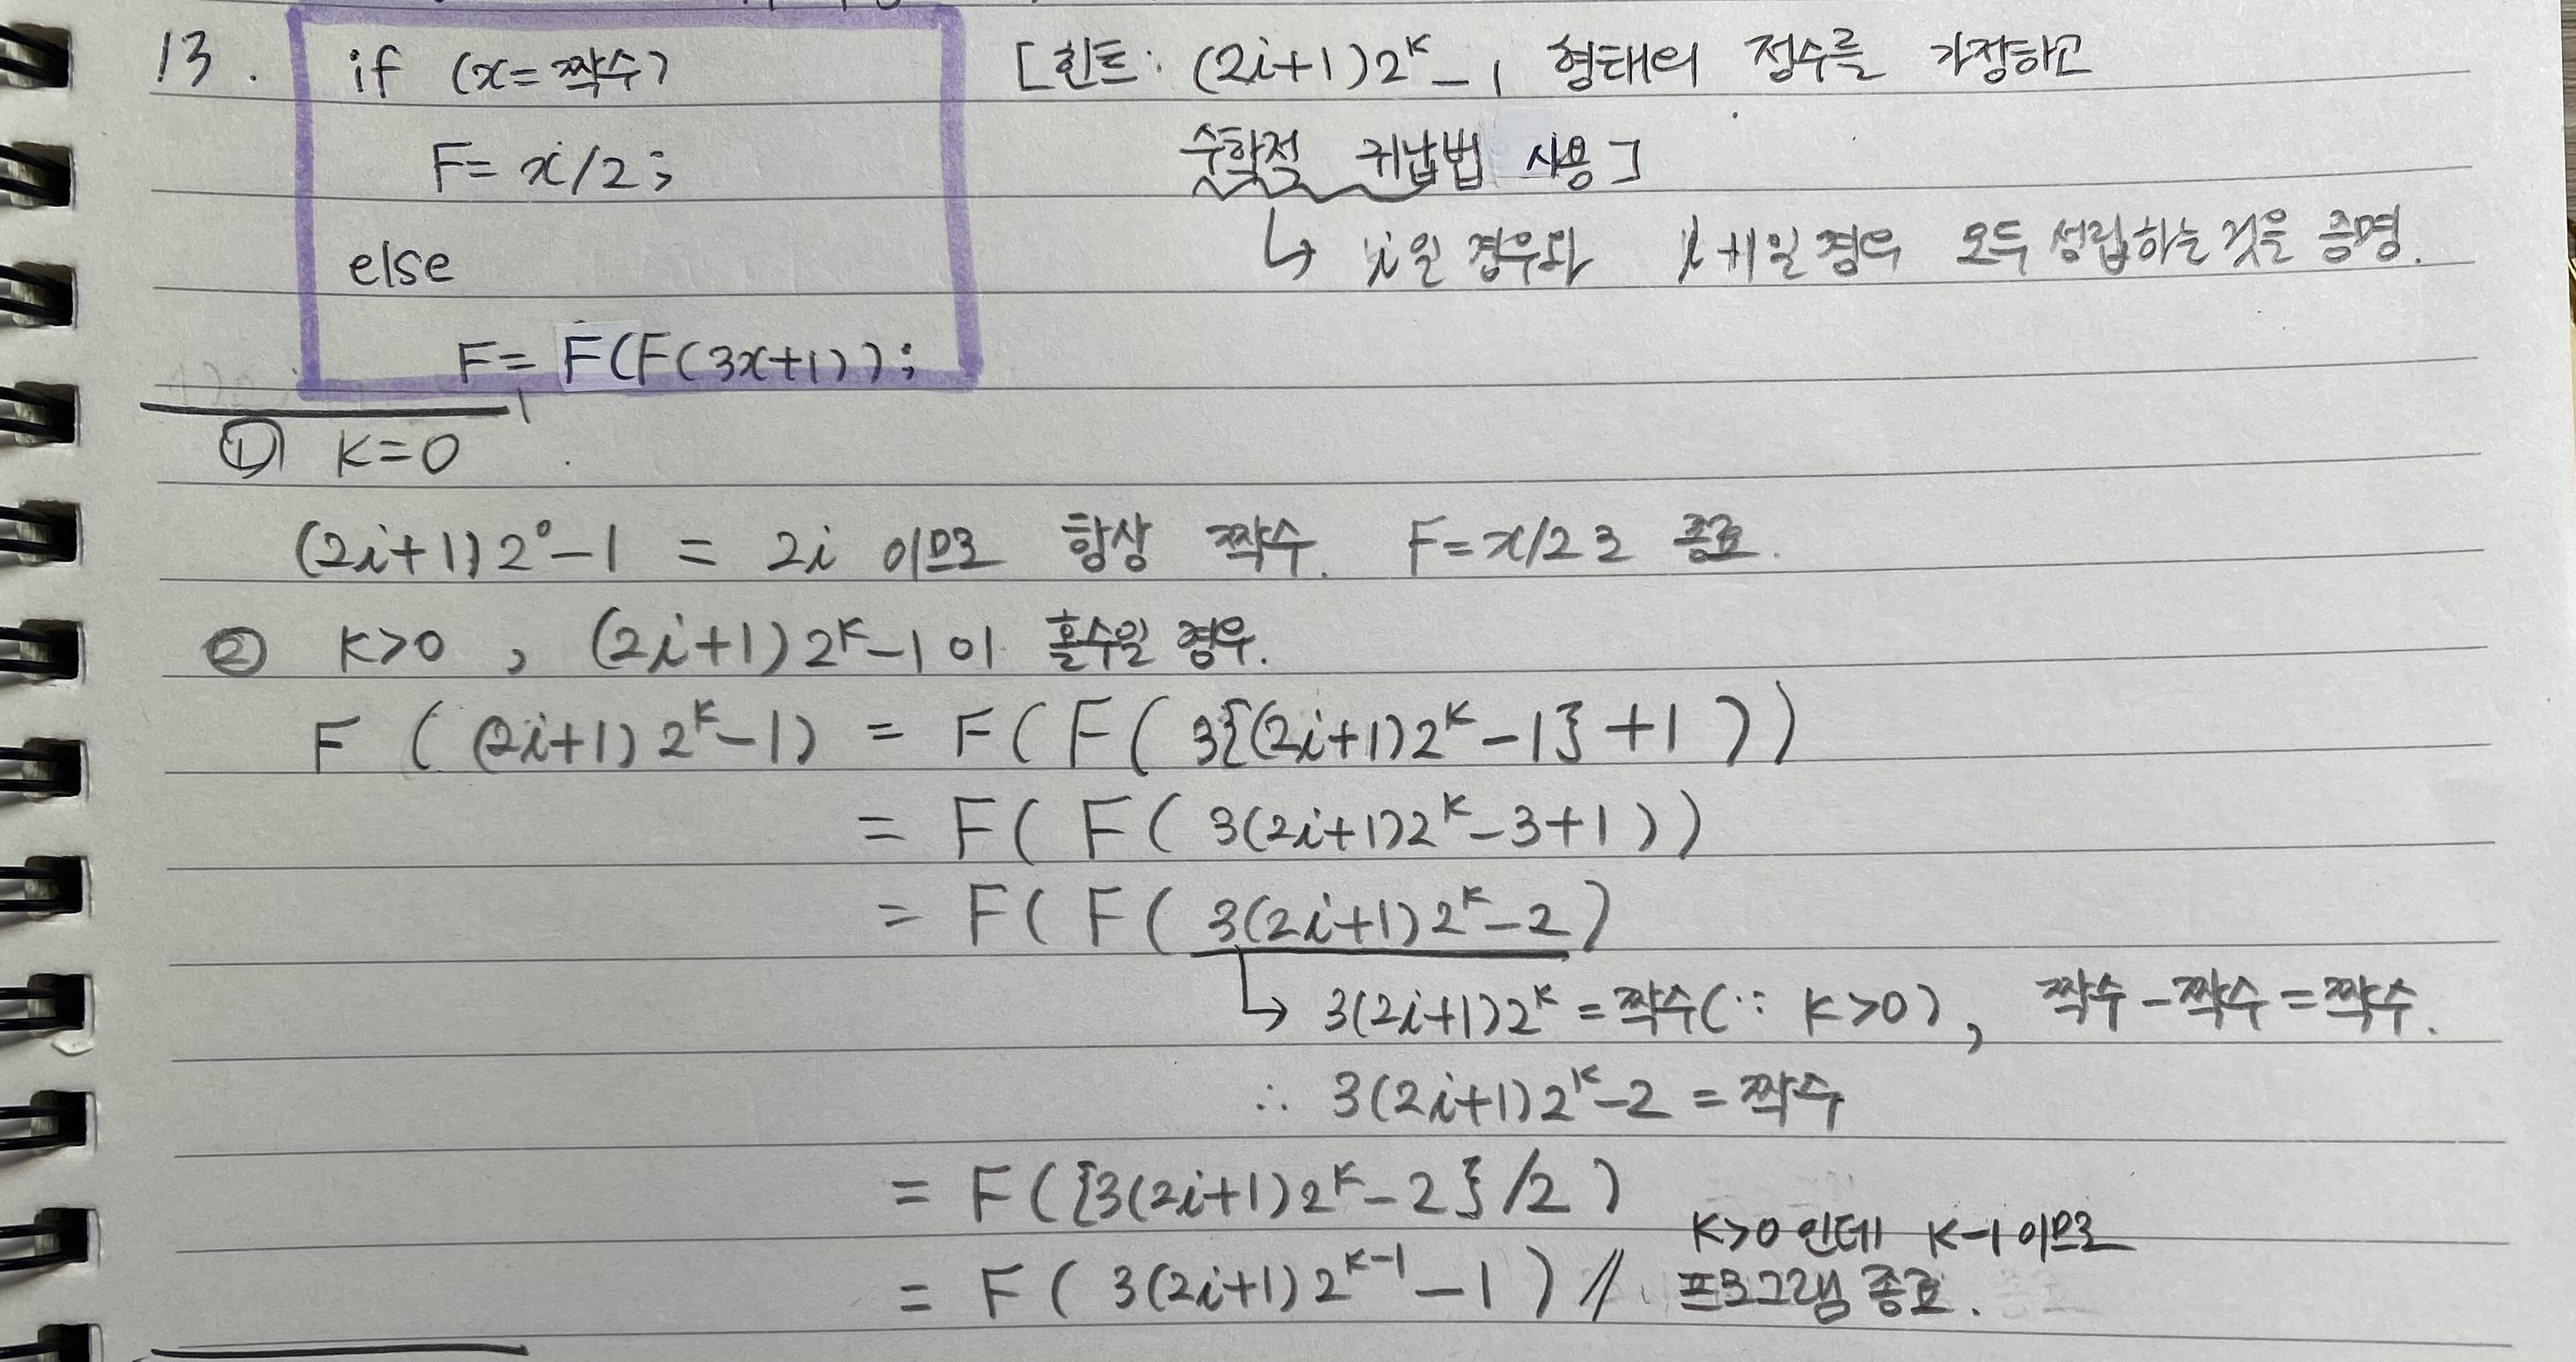 13. if (x=짝수) [힌트: (2i+1)2^k-1 형태의 정수를 가정하고
F= x/2; 수학적 귀납법 사용]
else ↳ i일 경우와 i+1일 경우 모두 성립하는 것을 증명.
F= F(F(3x+1));
① K=0
(2i+1)2^0-1 = 2i 이므로 항상 짝수. F=x/2로 종료.
② K>0, (2i+1)2^k-1이 홀수일 경우.
F((2i+1)2^k-1) = F(F(3{(2i+1)2^k-1}+1))
= F(F(3(2i+1)2^k-3+1))
= F(F(3(2i+1)2^k-2)
↳ 3(2i+1)2^k=짝수(∵ K>0), 짝수-짝수=짝수.
∴ 3(2i+1)2^k-2=짝수
= F({3(2i+1)2^k-2}/2)
K>0인데 K-1이므로
= F(3(2i+1)2^{k-1}-1) // 프로그램 종료.